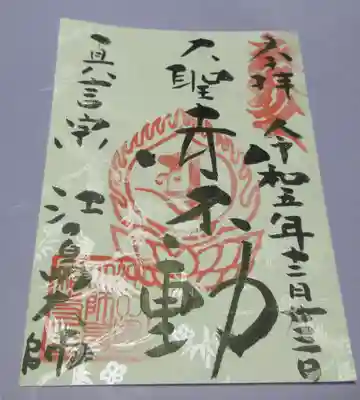 奉拝 令和五年十二月
大聖赤不動
真言宗 江の島大師